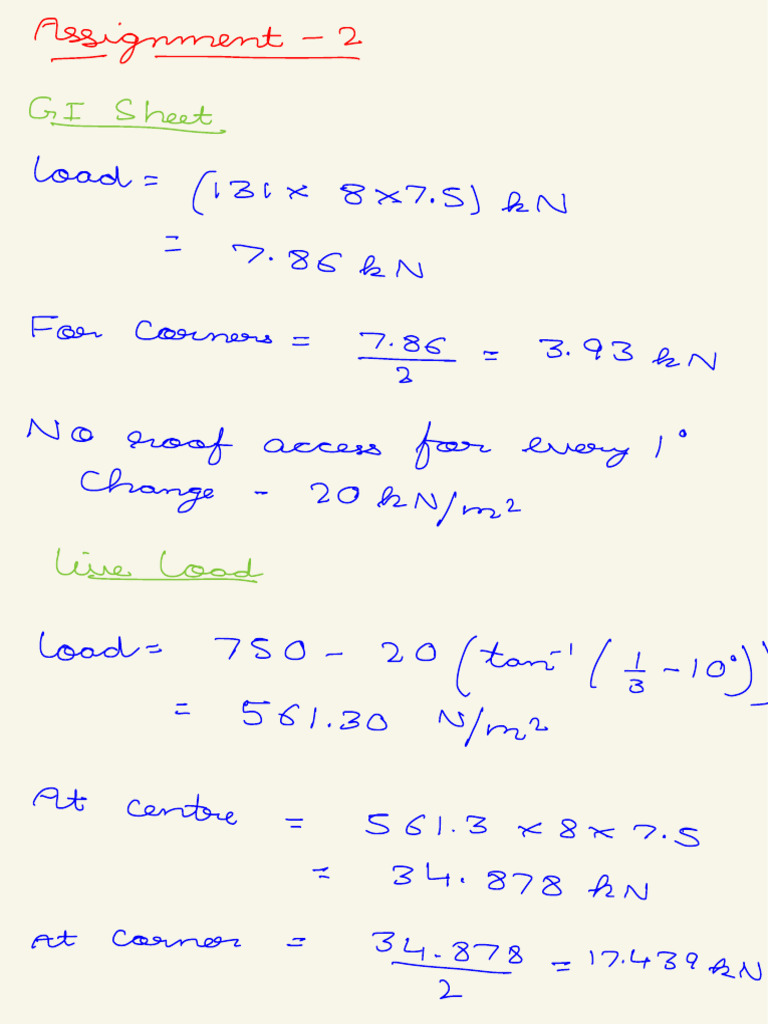 Assignment - 2
GI Sheet
Load = (131 × 8 × 7.5) kN
= 7.86 kN
For corners = 7.86/2 = 3.93 kN
No roof access for every 1°
change - 20 kN/m²
Live Load
Load = 750 - 20 (tan⁻¹ (1/3 - 10°))
= 561.30 N/m²
At centre = 561.3 × 8 × 7.5
= 34.878 kN
At corner = 34.878/2 = 17.439 kN